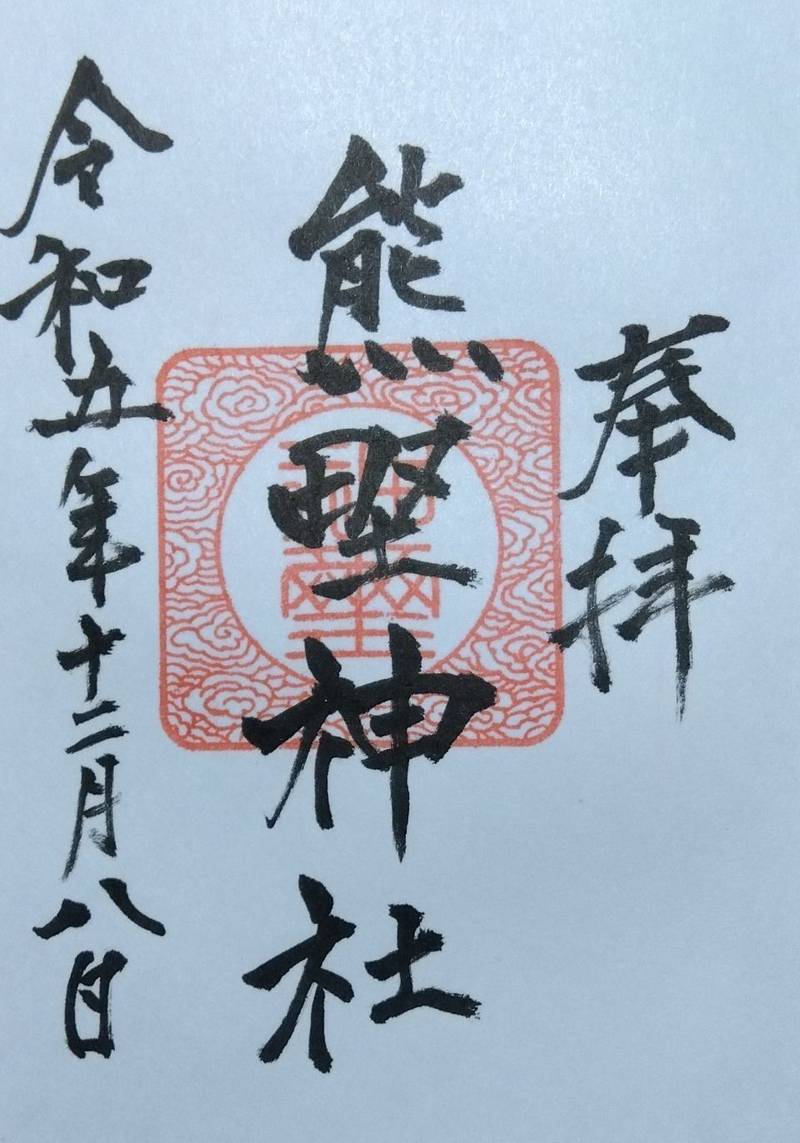 奉拝
熊野神社
令和五年十二月八日